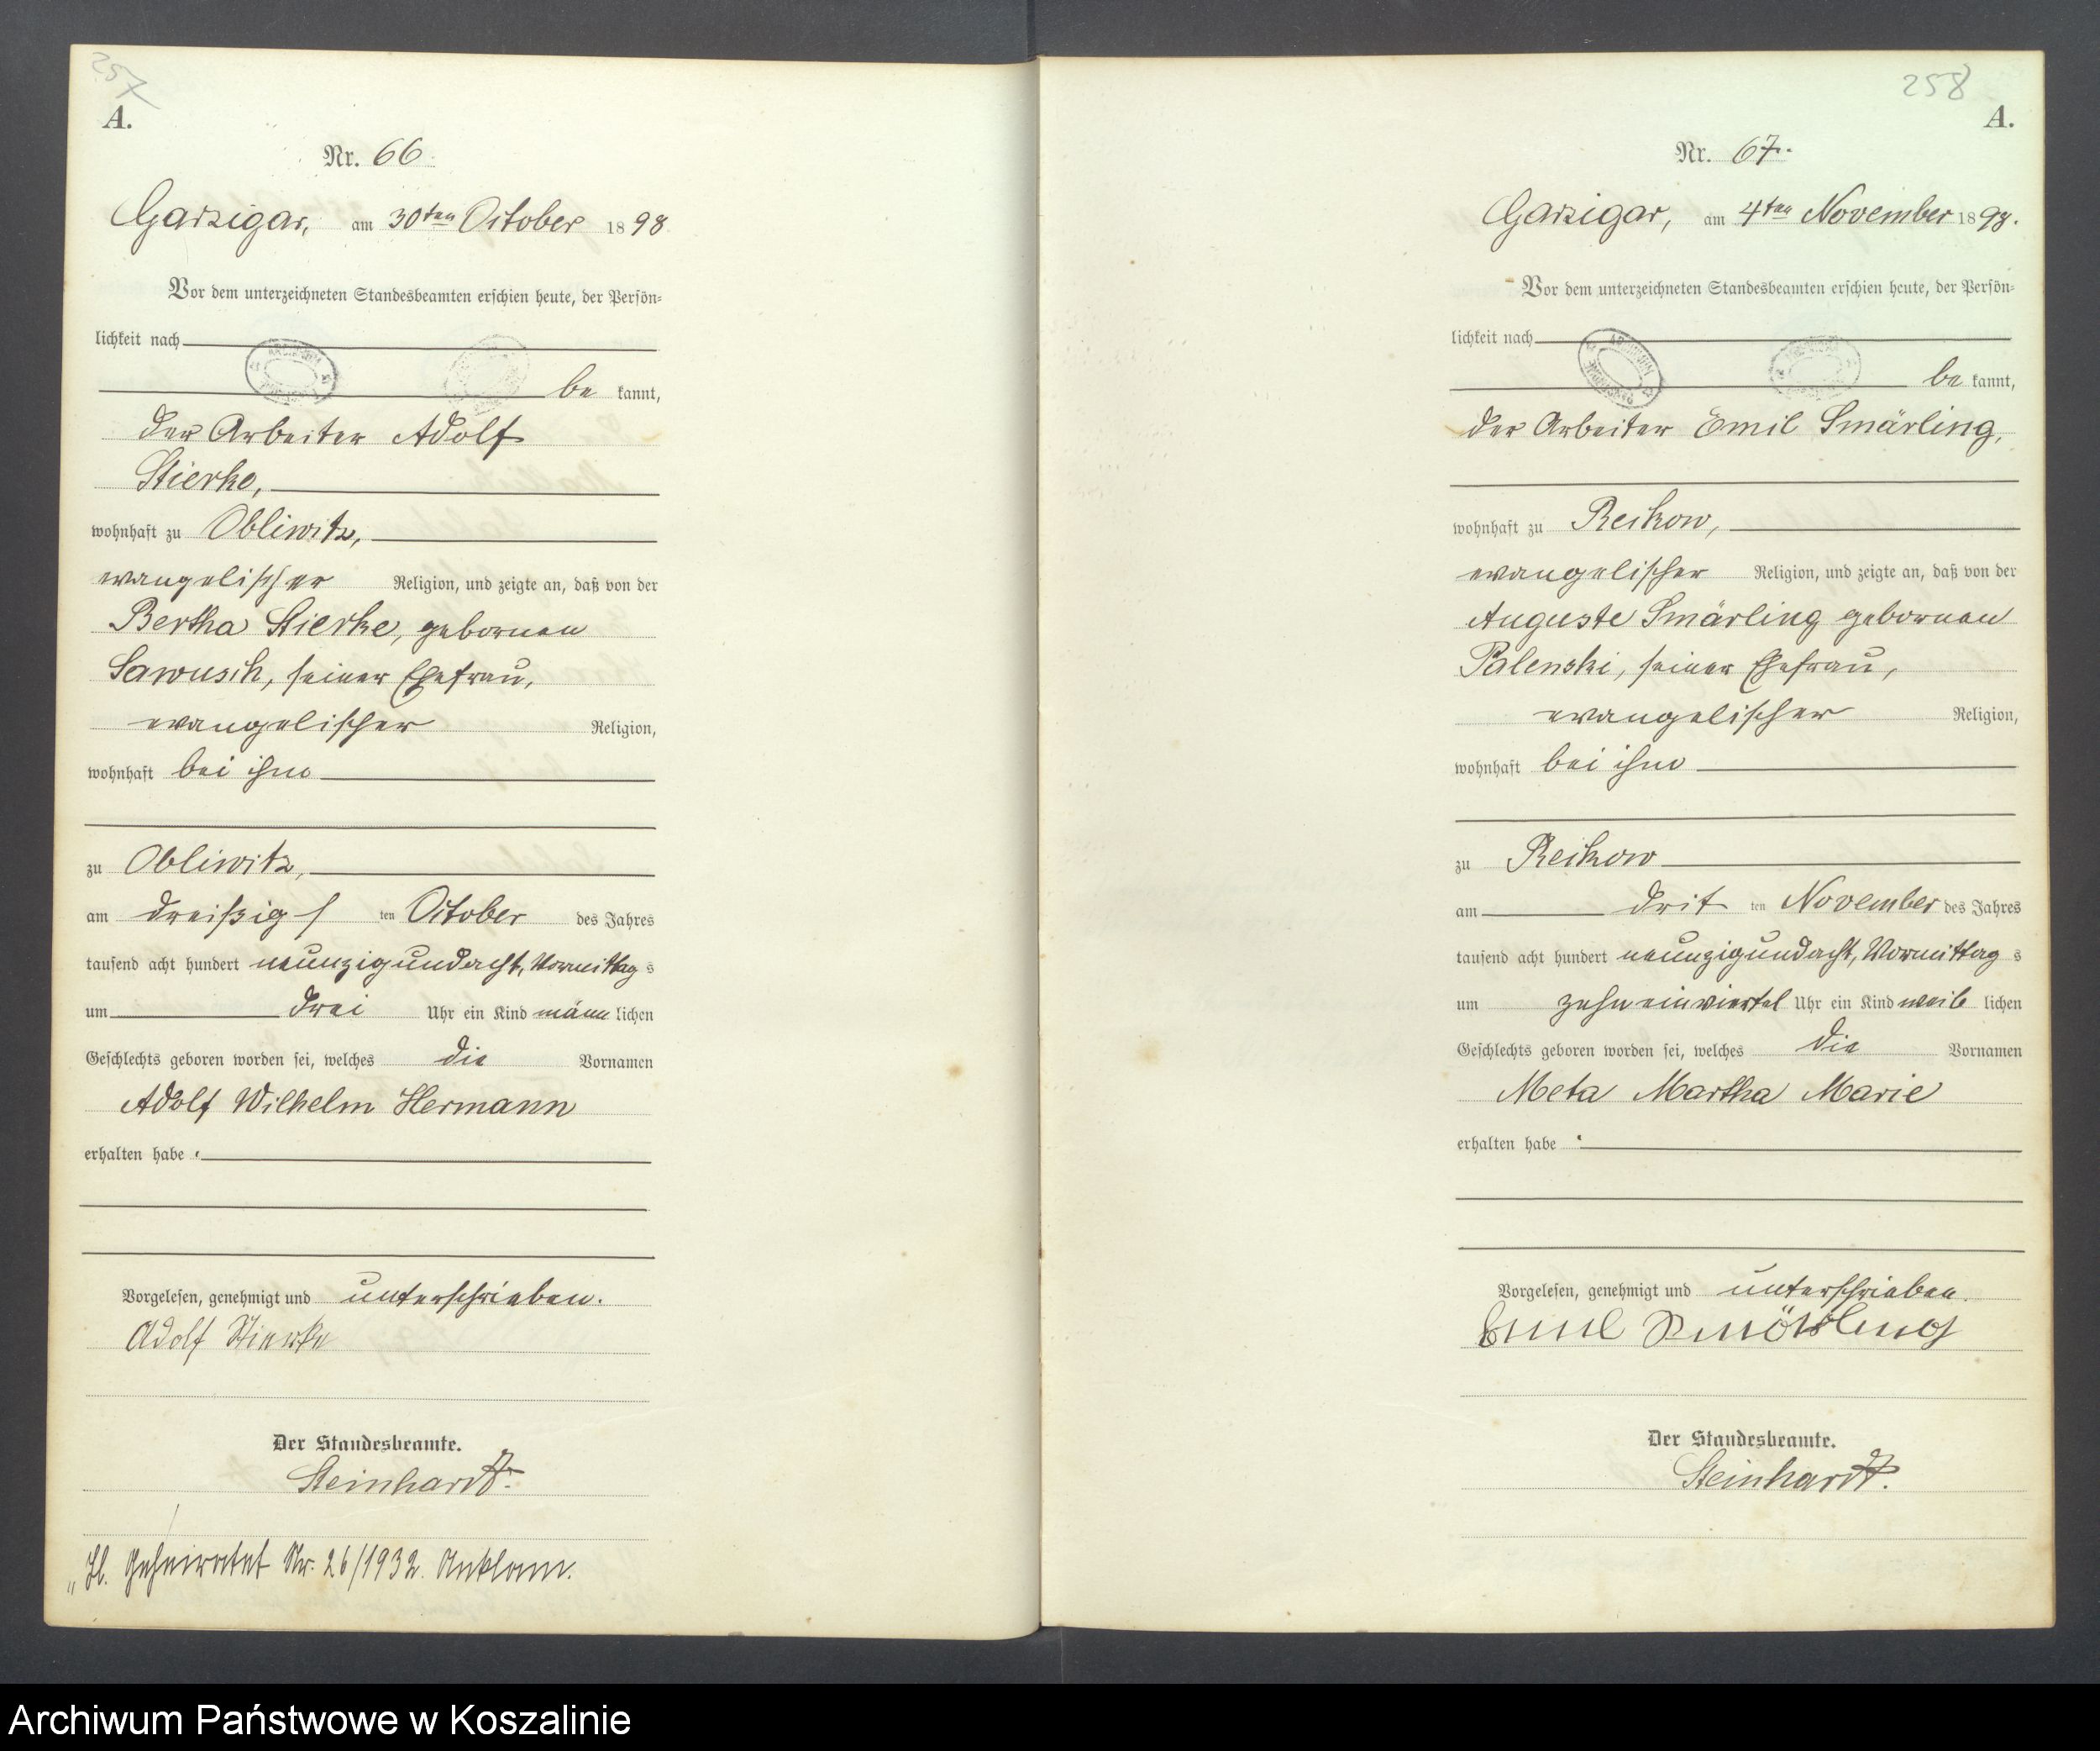 257
A.
Nr. 66.
Garzigar, am 30ten October 1898
Vor dem unterzeichneten Standesbeamten erschien heute, der Persön=
lichkeit nach
be kannt,
der Arbeiter Adolf
Stierke,
wohnhaft zu Obliwitz,
evangelischer Religion, und zeigte an, daß von der
Bertha Stierke, gebornen
Sawusch, seiner Ehefrau,
evangelischer Religion,
wohnhaft bei ihm
zu Obliwitz,
am dreißigs ten October des Jahres
tausend acht hundert neunzigundacht, Vormittag s
um drei Uhr ein Kind männ lichen
Geschlechts geboren worden sei, welches die Vornamen
Adolf Wilhelm Hermann
erhalten habe.
Vorgelesen, genehmigt und unterschrieben.
Adolf Stierke
Der Standesbeamte.
Steinhardt.
Geheiratet Nr. 26/1932. Anklam.
258
A.
Nr. 67.
Garzigar, am 4ten November 1898.
Vor dem unterzeichneten Standesbeamten erschien heute, der Persön=
lichkeit nach
be kannt,
der Arbeiter Emil Smärling,
wohnhaft zu Reckow,
evangelischer Religion, und zeigte an, daß von der
Auguste Smärling gebornen
Palenski, seiner Ehefrau,
evangelischer Religion,
wohnhaft bei ihm
zu Reckow
am drit ten November des Jahres
tausend acht hundert neunzigundacht, Vormittag s
um zehn einviertel Uhr ein Kind weib lichen
Geschlechts geboren worden sei, welches die Vornamen
Meta Martha Marie
erhalten habe.
Vorgelesen, genehmigt und unterschrieben.
Emil Smörling
Der Standesbeamte.
Steinhardt.
Archiwum Państwowe w Koszalinie